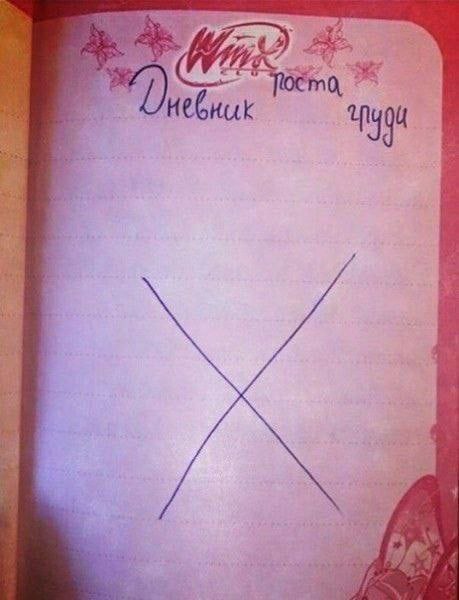 Winx
CLUB
Дневник роста груди